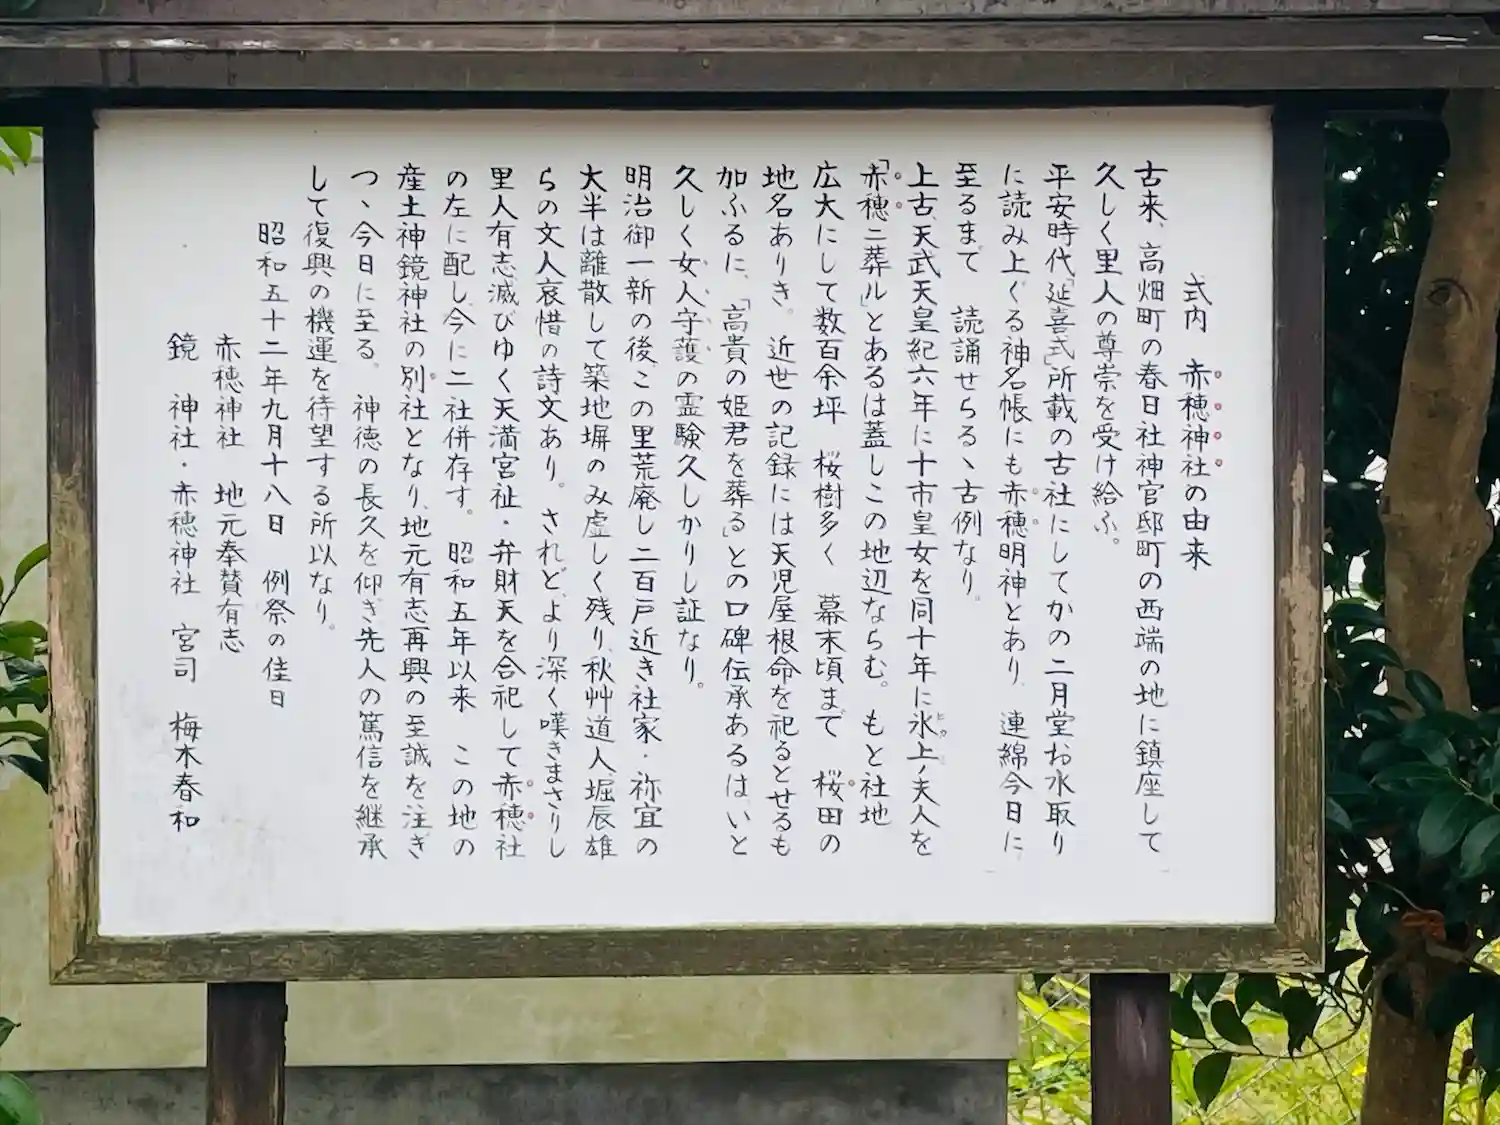 式内　赤穂神社の由来
古来、高畑町の春日社神官邸町の西端の地に鎮座して
久しく里人の尊崇を受け給ふ。
平安時代「延喜式」所載の古社にしてかの二月堂お水取り
に読み上ぐる神名帳にも赤穂明神とあり、連綿今日に
至るまで　読誦せらるヽ古例なり。
上古、天武天皇紀六年に十市皇女を同十年に氷上ノ夫人を
「赤穂ニ葬ル」とあるは蓋しこの地辺ならむ。もと社地
広大にして数百余坪　桜樹多く　幕末頃まで　桜田の
地名ありき。近世の記録には天児屋根命を祀るとせるも
加ふるに、「高貴の姫君を葬る」との口碑伝承あるは、いと
久しく女人守護の霊験久しかりし証なり。
明治御一新の後、この里荒廃し二百戸近き社家・祢宜の
大半は離散して築地塀のみ虚しく残り、秋艸道人、堀辰雄
らの文人哀惜の詩文あり。されど、より深く嘆きまさりし
里人有志、滅びゆく天満宮祉・弁財天を合祀して赤穂社
の左に配し、今に二社併存す。昭和五年以来　この地の
産土神鏡神社の別社となり、地元有志再興の至誠を注ぎ
つヽ今日に至る。神徳の長久を仰ぎ先人の篤信を継承
して復興の機運を待望する所以なり。
昭和五十二年九月十八日　例祭の佳日
赤穂神社　地元奉賛有志
鏡　神社・赤穂神社　宮司　梅木春和